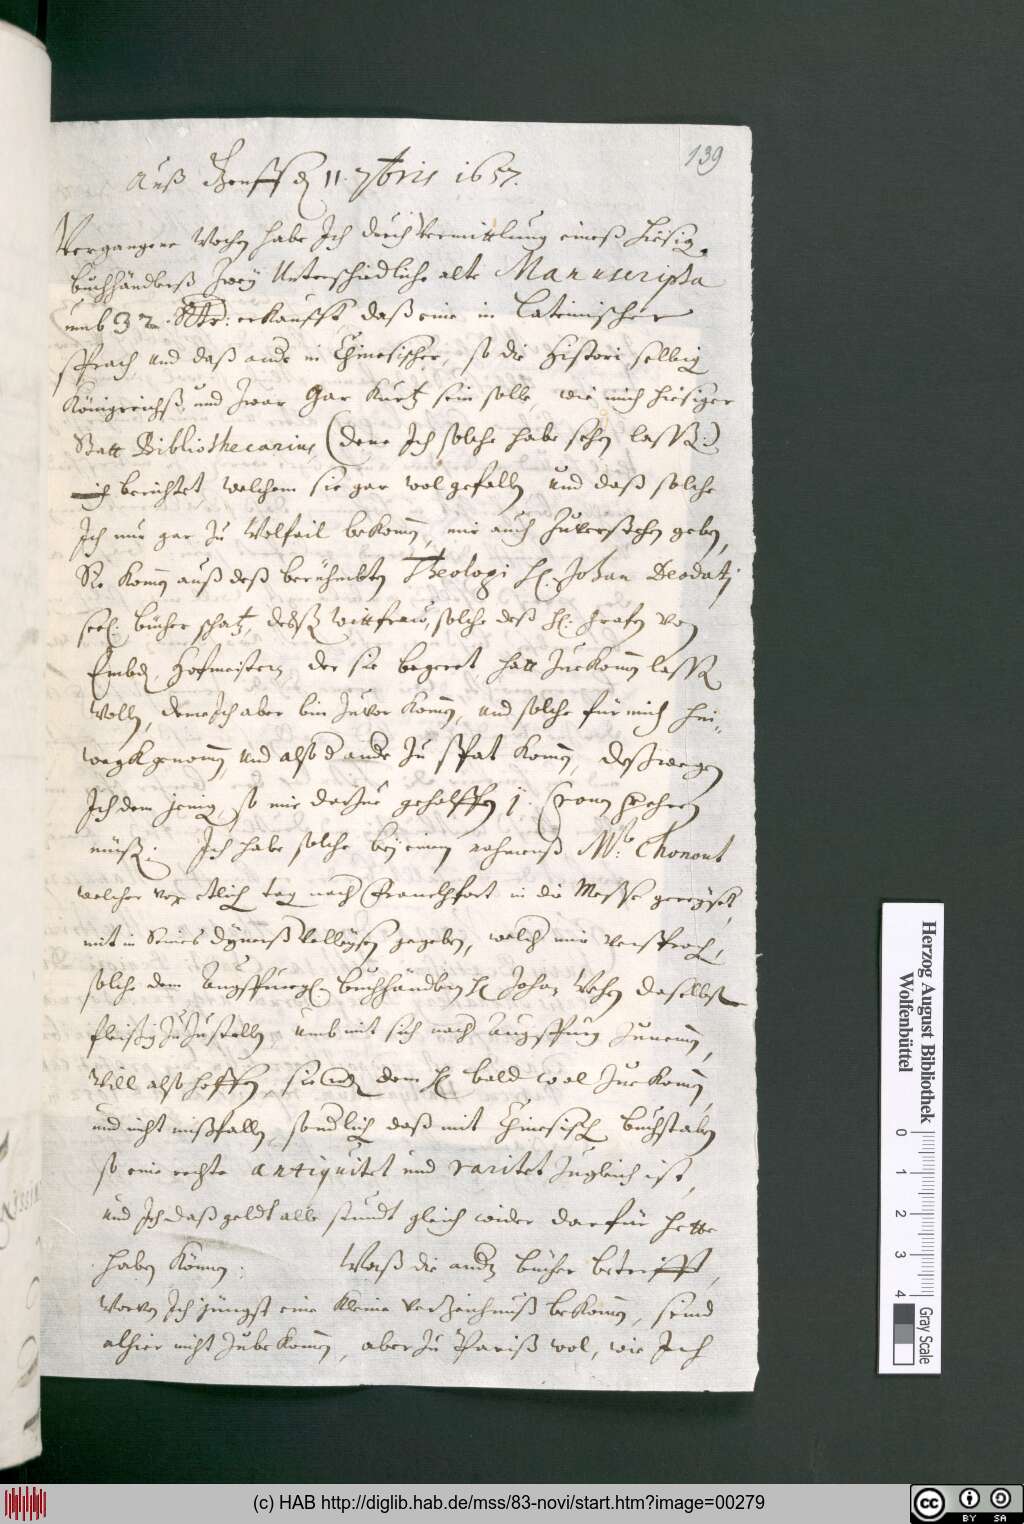 139
Auß Genff den 11. 7bris 1657.
Vergangene Wochen habe Ich durch Vermittlung eineß hiesig.
buchhändlerß Zweÿ Unterschiedliche alte Manuscripta
umb 32. Rthr: erkaufft daß eine in Lateinischer
sprach und daß ande in Chinesischer, so die Histori selbig
Königreichß, und Zwar Gar Kurtz sein solle wie mich hiesiger
Statt Bibliothecarius (deme Ich solche habe sehen lassen:)
berichtet, welchem sie gar wol gefallen und daß solche
Ich nur gar Zu Wolfeil bekommen, mir auch Zuverstehen geben,
Sie kommen auß deß berühmbten Theologi H. Johan Deodati
seel: bücher schatz, deßen wittfraw, solche deß H: Grafen von
Embden Hofmeistern, der sie begeret hatt Zue kommen lassen
wollen, deme Ich aber bin Zuvor kommen, und solche für mich hin-
wegk genommen, und also d ande Zu spat kommen, deßwegen
Ich dem jenigen so mir darzue geholffen j. verehren
müßen. Ich habe solche beÿ einem nahmenß Mr: Chonout
welcher vor etlich tag nach Franckhfort in die Messe gereÿset,
mit in Seines geben, welcher mir versprochen,
solche dem Augspurg. buchhändlern H Johan Wehen daselbst
fleißig Zu Zustellen, umb mit sich nach Augspurg Zunemmen,
Will also hoffen, sie dem H bald wol Zue kommen,
und nicht mißfallen, sonderlich daß mit Chinesisch buchstaben
so eine rechte antiquitet und raritet Zugleich ist,
und Ich daß geldt alle stundt gleich wider darfür hette
haben können. Waß die anderen bücher betrifft,
Wovon Ich jüngst eine kleine verzeichnuß bekommen, seind
alhier nicht Zubekommen, aber Zu Pariß wol, wie Ich
Herzog August Bibliothek
Wolfenbüttel
0 1 2 3 4
Gray Scale
(c) HAB http://diglib.hab.de/mss/83-novi/start.htm?image=00279
cc BY SA